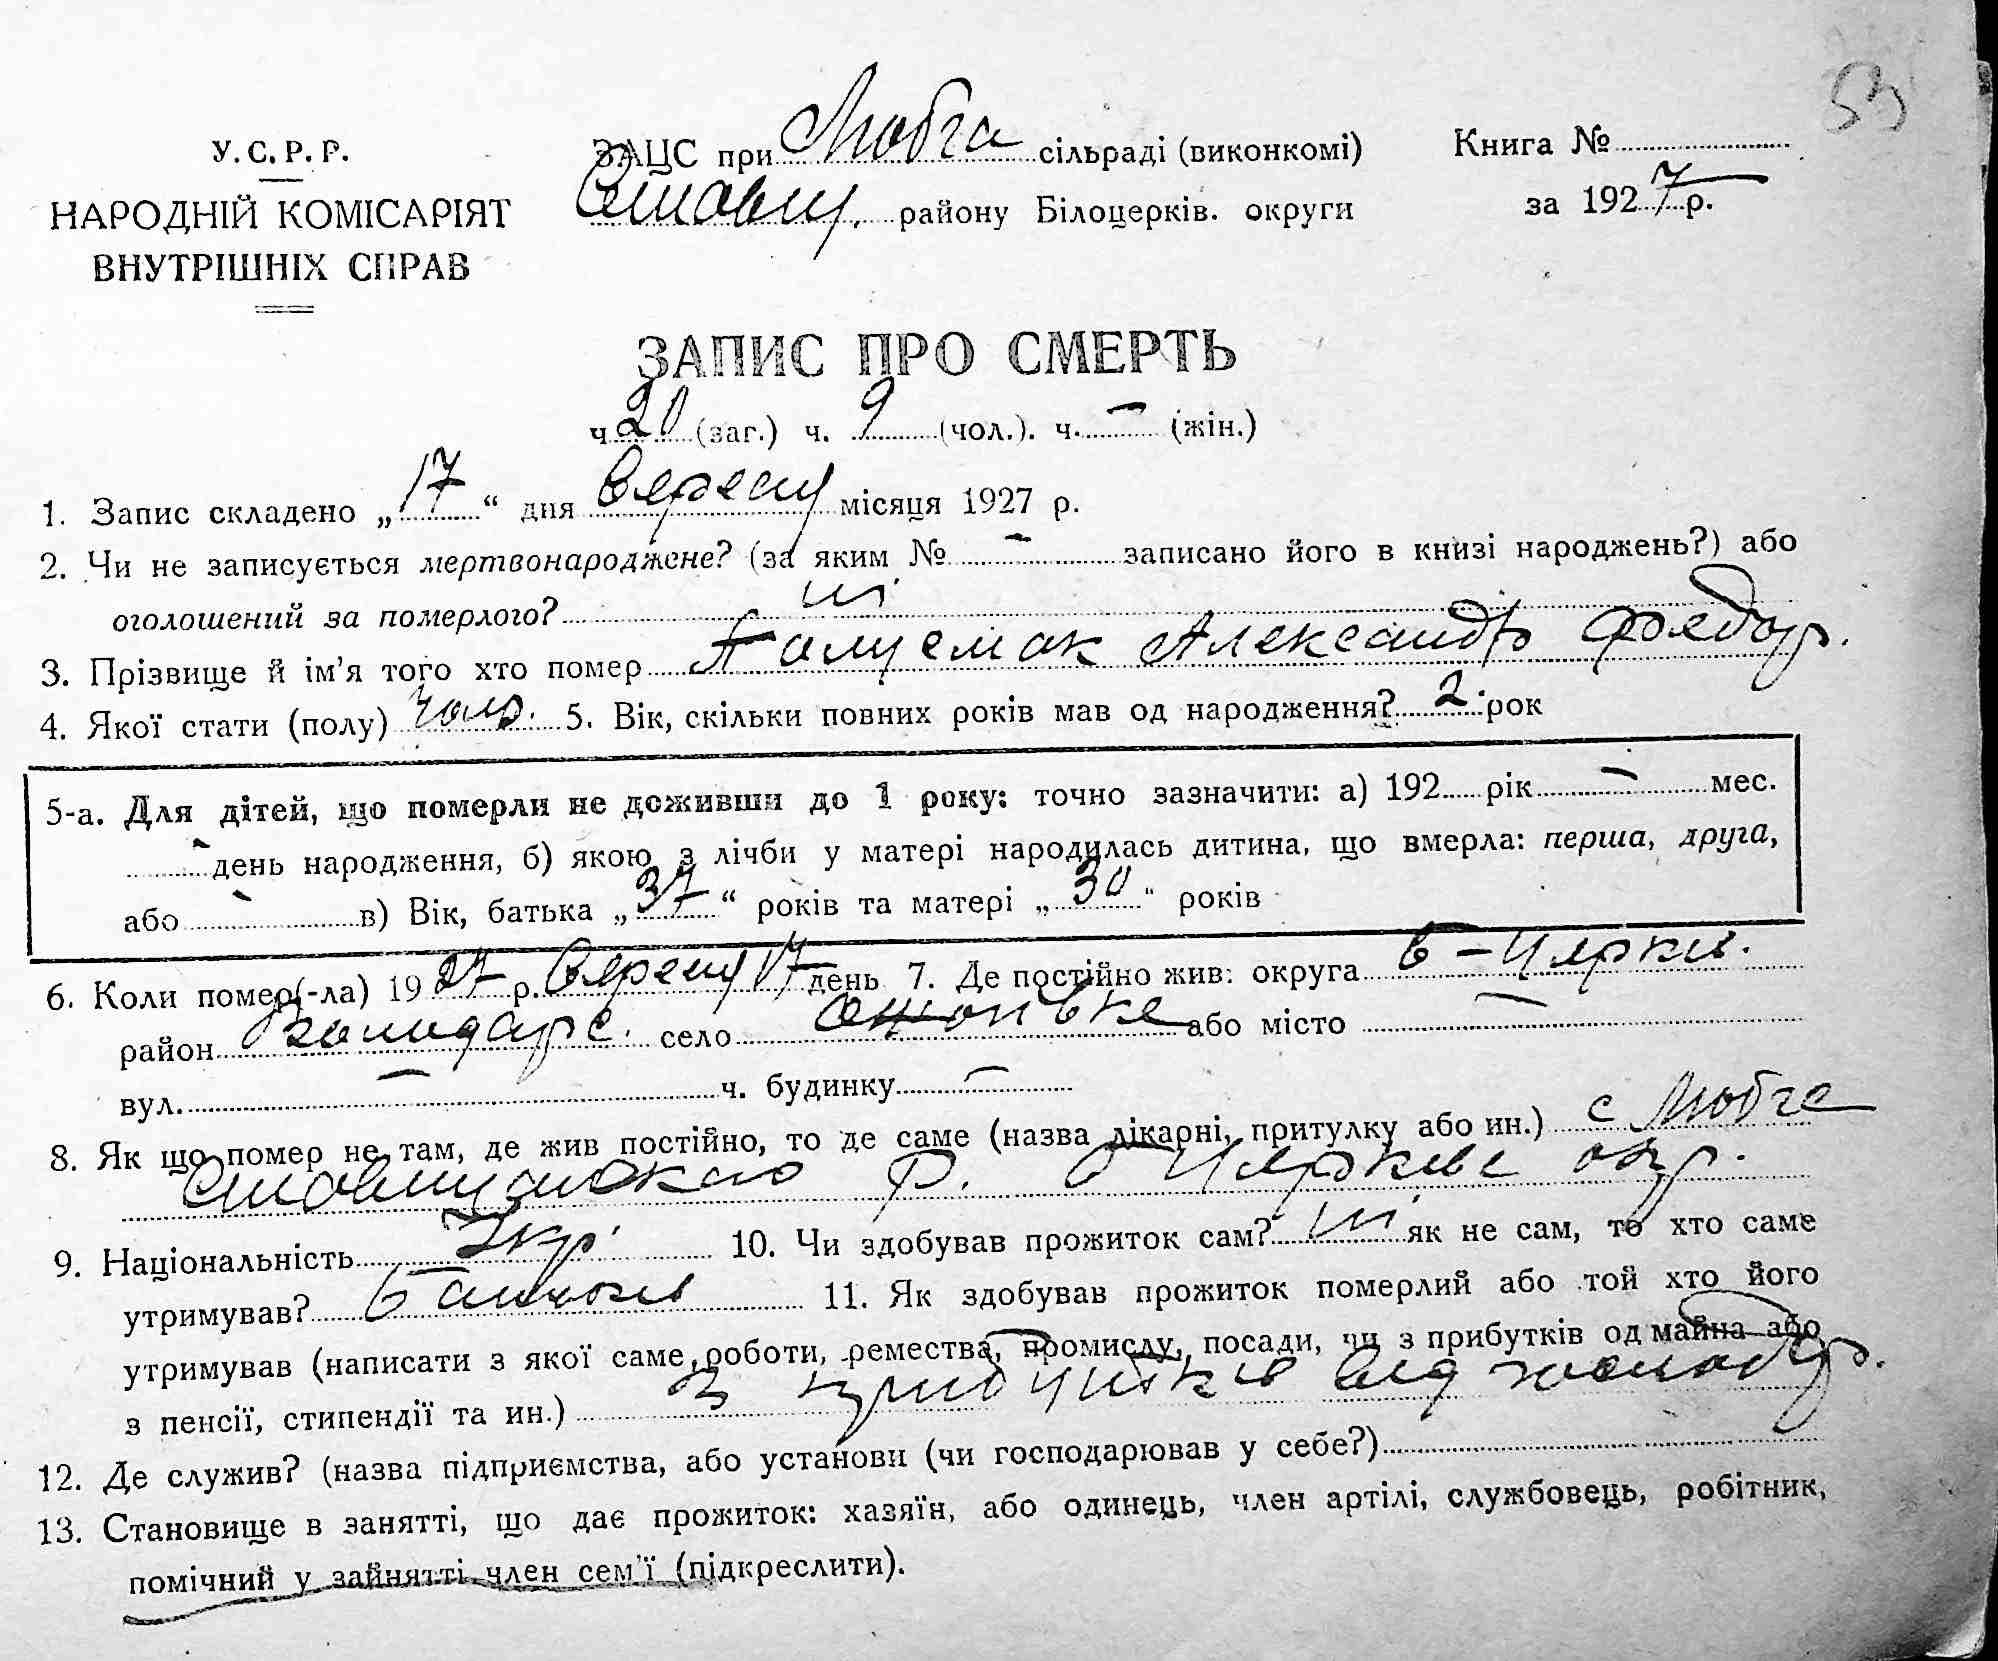 53
У. С. Р. Р.
НАРОДНІЙ КОМІСАРІЯТ
ВНУТРІШНІХ СПРАВ
ЗАЦС при Любча сільраді (виконкомі)
Ставищ. району Білоцерків. округи
Книга №
за 1927 р.
ЗАПИС ПРО СМЕРТЬ
ч. 20 (заг.) ч. 9 (чол.). ч. — (жін.)
1. Запис складено „17“ дня Вересня місяця 1927 р.
2. Чи не записується мертвонароджене? (за яким № — записано його в книзі народжень?) або
оголошений за померлого? ні
3. Прізвище й ім'я того хто помер Александр Федор.
4. Якої стати (полу) чолов. 5. Вік, скільки повних років мав од народження? 2 рок
5-а. Для дітей, що померли не доживши до 1 року: точно зазначити: а) 192 рік — мес.
— день народження, б) якою з лічби у матері народилась дитина, що вмерла: перша, друга,
або — в) Вік, батька „37“ років та матері „30“ років
6. Коли помер(-ла) 1927 р. Вересня 17 день 7. Де постійно жив: округа Б-Церкв.
район Володарс. село або місто —
вул. — ч. будинку —
8. Як що помер не там, де жив постійно, то де саме (назва лікарні, притулку або ин.) с Любча
р. Б Церкве окр.
9. Національність Укр. 10. Чи здобував прожиток сам? ні як не сам, то хто саме
утримував? Батьки 11. Як здобував прожиток померлий або той хто його
утримував (написати з якої саме роботи, ремества, промислу, посади, чи з прибутків од майна або
з пенсії, стипендії та ин.) З прибутків від господар.
12. Де служив? (назва підприємства, або установи (чи господарював у себе?)
13. Становище в занятті, що дає прожиток: хазяїн, або одинець, член артілі, службовець, робітник,
помічний у зайнятті член сем'ї (підкреслити).